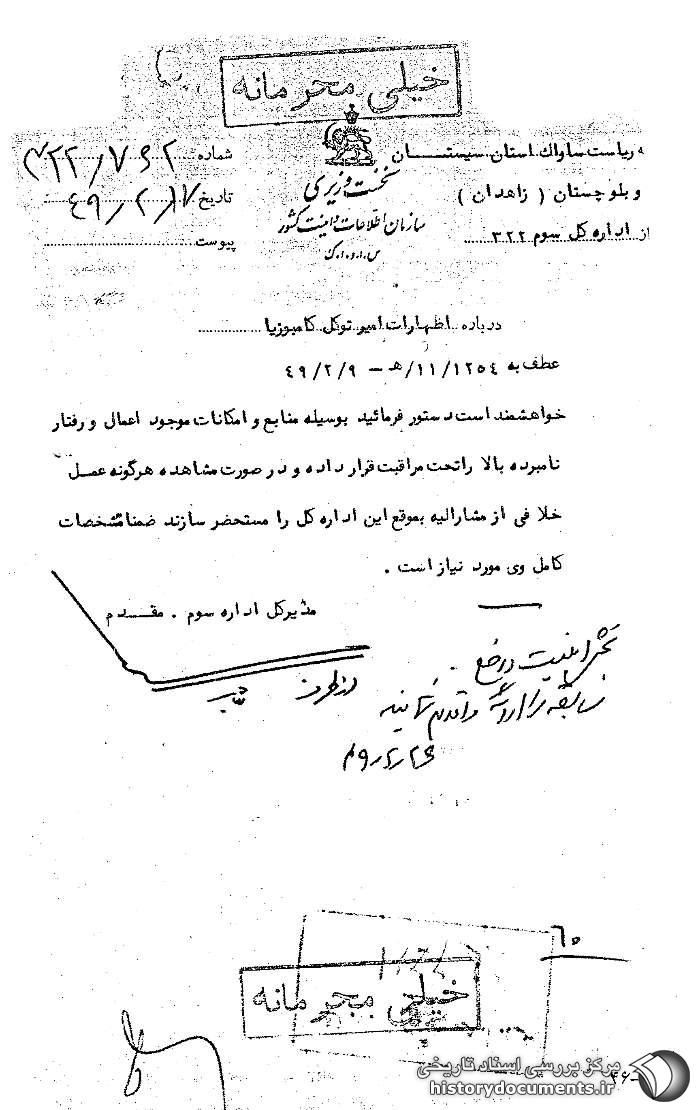 خیلی محرمانه
به ریاست ساواک استان سیستــــان
و بلوچستان ( زاهدان )
از اداره کل سوم ۳۲۲
نخست وزیری
سازمان اطلاعات و امنیت کشور
س.ا.و.ا.ک
شماره ۳۲۲/۷۶۲
تاریخ ۴۹/۲/۱۷
پیوست
درباره اظهارات امیر توکل کامبوزیا
عطف به ۱۱/۱۲۵۴/ه‍ – ۴۹/۲/۹
خواهشمند است دستور فرمائید بوسیله منابع و امکانات موجود اعمال و رفتار
نامبرده بالا را تحت مراقبت قرار داده و در صورت مشاهده هرگونه عمــل
خلافی از مشارالیه بموقع این اداره کل را مستحضر سازند ضمنا مشخصات
کامل وی مورد نیاز است .
مدیرکل اداره سوم . مقــدم
از طرف
سابقه را ارائه و اقدام نمائید
۶۰
خیلی محرمانه
مرکز بررسی اسناد تاریخی
historydocuments.ir